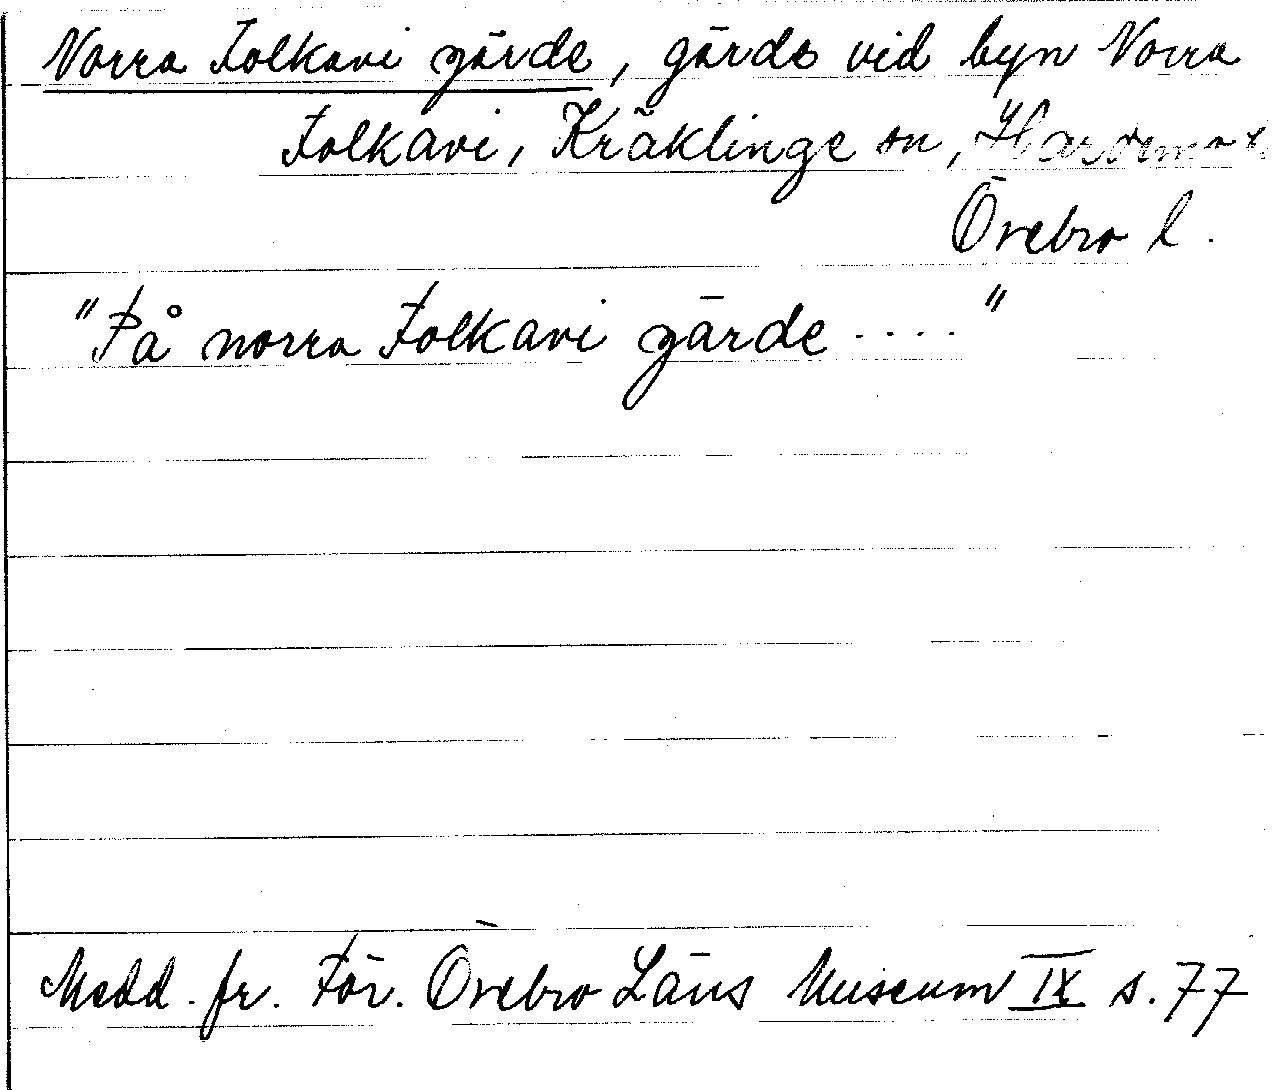 Norra Folkavi gärde, gärde vid byn Norra
Folkavi, Kräklinge sn, Hardemo h
Örebro l.
"På norra Folkavi gärde ...."
Medd. fr. För. Örebro Läns Museum IX s. 77